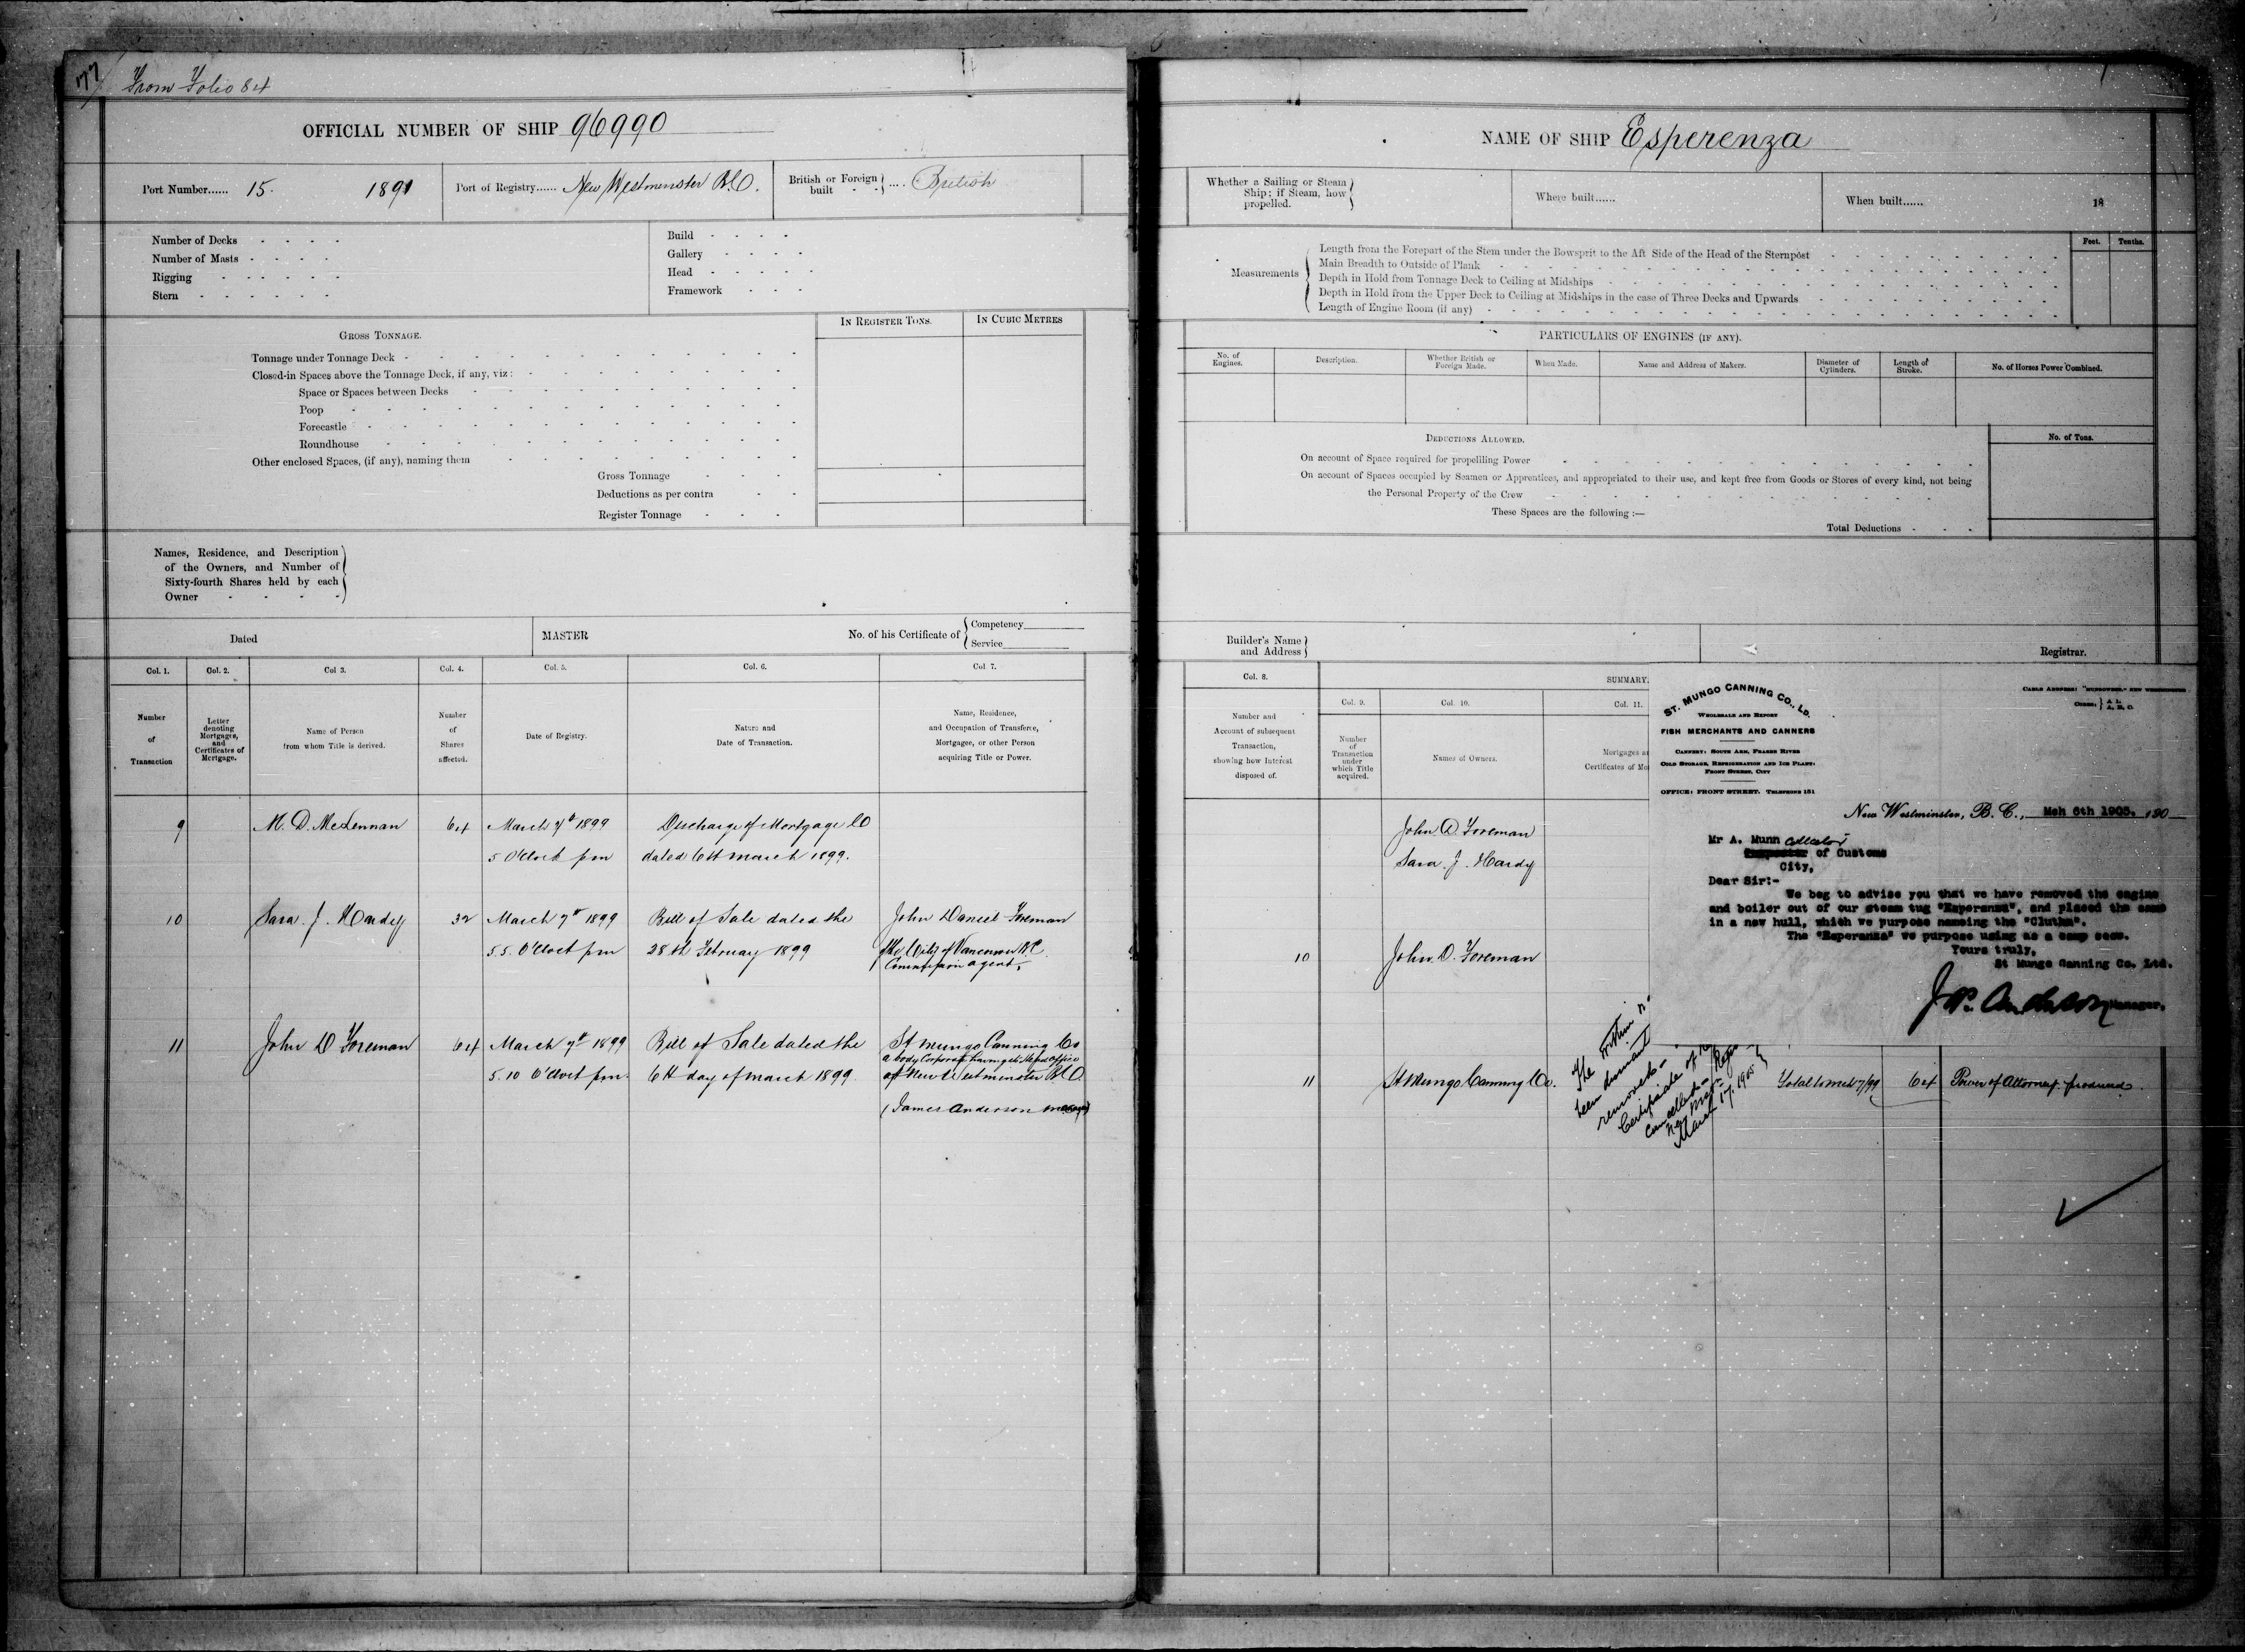 177 From Folio 84
OFFICIAL NUMBER OF SHIP 96990
Port Number...... 15. 1891
Port of Registry...... New Westminster B.C.
British or Foreign built .... British
Number of Decks
Number of Masts
Rigging
Stern
Build
Gallery
Head
Framework
GROSS TONNAGE.
IN REGISTER TONS.
IN CUBIC METRES
Tonnage under Tonnage Deck
Closed-in Spaces above the Tonnage Deck, if any, viz:
Space or Spaces between Decks
Poop
Forecastle
Roundhouse
Other enclosed Spaces, (if any), naming them
Gross Tonnage
Deductions as per contra
Register Tonnage
Names, Residence, and Description
of the Owners, and Number of
Sixty-fourth Shares held by each
Owner
Dated
MASTER
No. of his Certificate of
Competency
Service
Col. 1. Col. 2. Col 3. Col. 4. Col. 5. Col. 6. Col 7.
Number
of
Transaction
Letter
denoting
Mortgages,
and
Certificates of
Mortgage.
Name of Person
from whom Title is derived.
Number
of
Shares
affected.
Date of Registry.
Nature and
Date of Transaction.
Name, Residence,
and Occupation of Transferee,
Mortgagee, or other Person
acquiring Title or Power.
9 M. D. McLennan 64 March 7th 1899 Discharge of Mortgage
5 O'Clock pm dated 6th March 1899.
10 Sara. J. Hardy 32 March 7th 1899 Bill of Sale dated the John Daniel Foreman
5.5. O'Clock pm 28th February 1899 of the City of Vancouver B.C.
Commission agent,
11 John D Foreman 64 March 7th 1899 Bill of Sale dated the St Mungo Canning Co
a body Corporate having its Head office
5.10 O'Clock pm. 6th day of March 1899. at New Westminster B.C.
(James Anderson
NAME OF SHIP Esperenza
Whether a Sailing or Steam
Ship; if Steam, how
propelled.
Where built......
When built...... 18
Measurements
Feet. Tenths.
Length from the Forepart of the Stem under the Bowsprit to the Aft Side of the Head of the Sternpost
Main Breadth to Outside of Plank
Depth in Hold from Tonnage Deck to Ceiling at Midships
Depth in Hold from the Upper Deck to Ceiling at Midships in the case of Three Decks and Upwards
Length of Engine Room (if any)
PARTICULARS OF ENGINES (IF ANY).
No. of
Engines.
Description.
Whether British or
Foreign Made.
When Made.
Name and Address of Makers.
Diameter of
Cylinders.
Length of
Stroke.
No. of Horses Power Combined.
DEDUCTIONS ALLOWED.
No. of Tons.
On account of Space required for propelling Power
On account of Spaces occupied by Seamen or Apprentices, and appropriated to their use, and kept free from Goods or Stores of every kind, not being
the Personal Property of the Crew
These Spaces are the following :—
Total Deductions
Builder's Name
and Address
Registrar.
Col. 8.
SUMMARY.
Col. 9. Col. 10. Col. 11.
Number and
Account of subsequent
Transaction,
showing how Interest
disposed of.
Number
of
Transaction
under
which Title
acquired.
Names of Owners.
Mortgages
Certificates of
John D. Foreman
Sara. J. Hardy
10 John. D. Foreman
11 St Mungo Canning Co. 64 Power of Attorney produced.
The within
been dismant
removed
Certificate of
Cancelled
March 17. 1905
ST. MUNGO CANNING CO., LD.
WHOLESALE AND EXPORT
FISH MERCHANTS AND CANNERS
CANNERY: SOUTH ARM, FRASER RIVER
COLD STORAGE, REFRIGERATION AND ICE PLANT:
FRONT STREET, CITY
OFFICE: FRONT STREET. TELEPHONE 151
CODES: A 1. A, B, C.
New Westminster, B. C., Mch 6th 1905. 190
Mr A. Munn Collector
of Customs
City,
Dear Sir:-
We beg to advise you that we have removed the engine
and boiler out of our steam tug "Esperanza", and placed the same
in a new hull, which we purpose nameing the "Clutha".
The "Esperanza" we purpose using as a camp scow.
Yours truly,
St Mungo Canning Co. Ltd.
J. Anderson Manager.